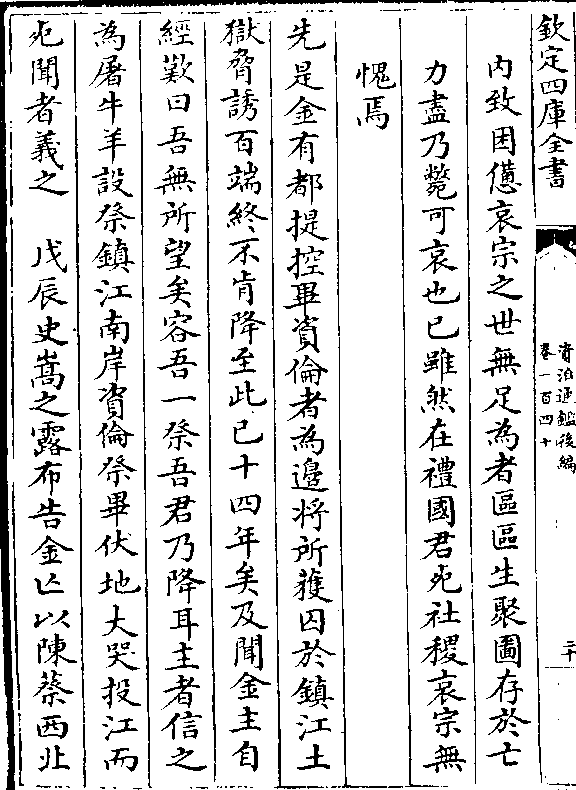 欽定四庫全書
資治通鑑後編
卷一百四十
二十
內致困憊哀宗之世無足為者區區生聚圖存於亡
力盡乃斃可哀也已雖然在禮國君死社稷哀宗無
愧焉
先是金有都提控畢資倫者為邊將所獲囚於鎮江土
獄脅誘百端終不肯降至此已十四年矣及聞金主自
經歎曰吾無所望矣容吾一祭吾君乃降耳主者信之
為屠牛羊設祭鎮江南岸資倫祭畢伏地大哭投江而
死聞者義之　戊辰史嵩之露布告金亡以陳蔡西北